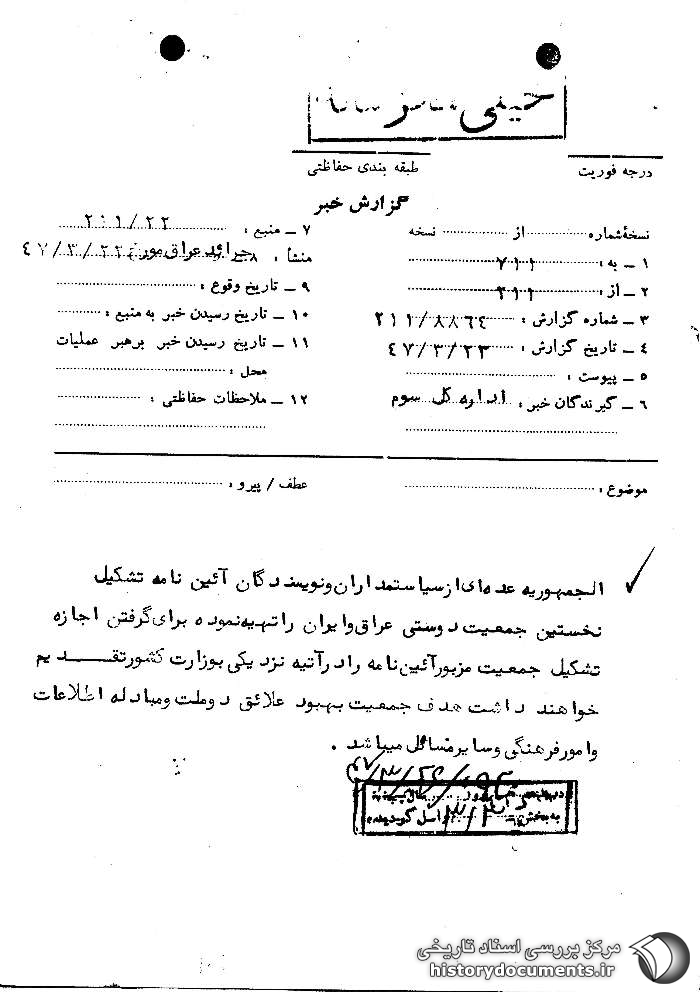 خیلی
درجه فوریت
طبقه بندی حفاظتی
گزارش خبر
نسخهٔ شماره از نسخه
۱ ـ به : ۷۱۱
۲ ـ از : ۲۱۱
۳ ـ شماره گزارش : ۲۱۱/۸۸۶۴
۴ ـ تاریخ گزارش : ۴۷/۳/۲۳
۵ ـ پیوست :
۶ ـ گیرندگان خبر : اداره کل سوم
۷ ـ منبع : ۲۱۱/۲۲
۸ ـ منشأ : جرائد عراق مورخ ۴۷/۳/۲۲
۹ ـ تاریخ وقوع :
۱۰ ـ تاریخ رسیدن خبر به منبع :
۱۱ ـ تاریخ رسیدن خبر برهبر عملیات
محل :
۱۲ ـ ملاحظات حفاظتی :
موضوع :
عطف / پیرو :
الجمهوریه عده‌ای از سیاستمداران و نویسندگان آئین نامه تشکیل
نخستین جمعیت دوستی عراق و ایران را تهیه نموده برای گرفتن اجازه
تشکیل جمعیت مزبور آئین نامه را در آتیه نزدیکی بوزارت کشور تقدیم
خواهند داشت هدف جمعیت بهبود علائق دوملت و مبادله اطلاعات
و امور فرهنگی و سایر مسائل میباشد .
به بخش
مرکز بررسی اسناد تاریخی
historydocuments.ir